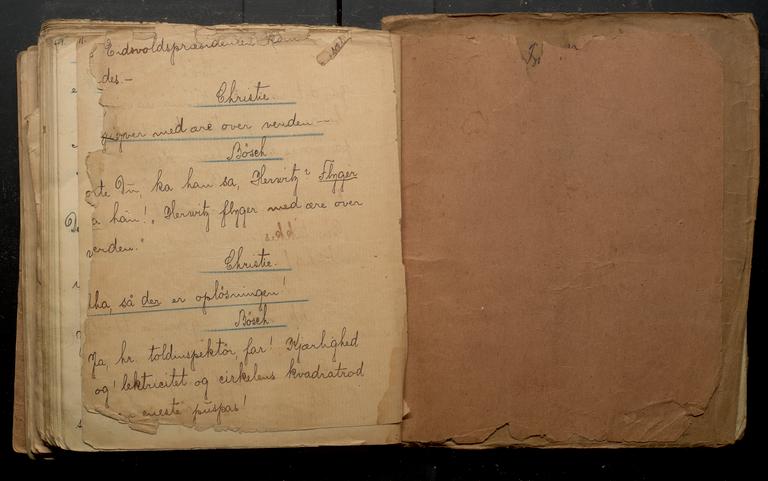 Eidsvoldspræsidenten
des. —
Christie.
flyver med ære over verden —
Bösch
Du, ka han sa, Herwitz? Flyger
a han! "Herwitz flyger med ære over
verden."
Christie.
Aha, så der er oplösningen!
Bösch.
Ja, hr. toldinspektör, far! Kjærlighed
og lektricitet og cirkelens kvadratrod
eneste puspas!